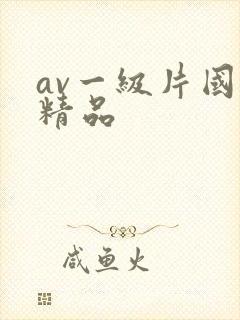 av一級片國
精品
咸鱼火